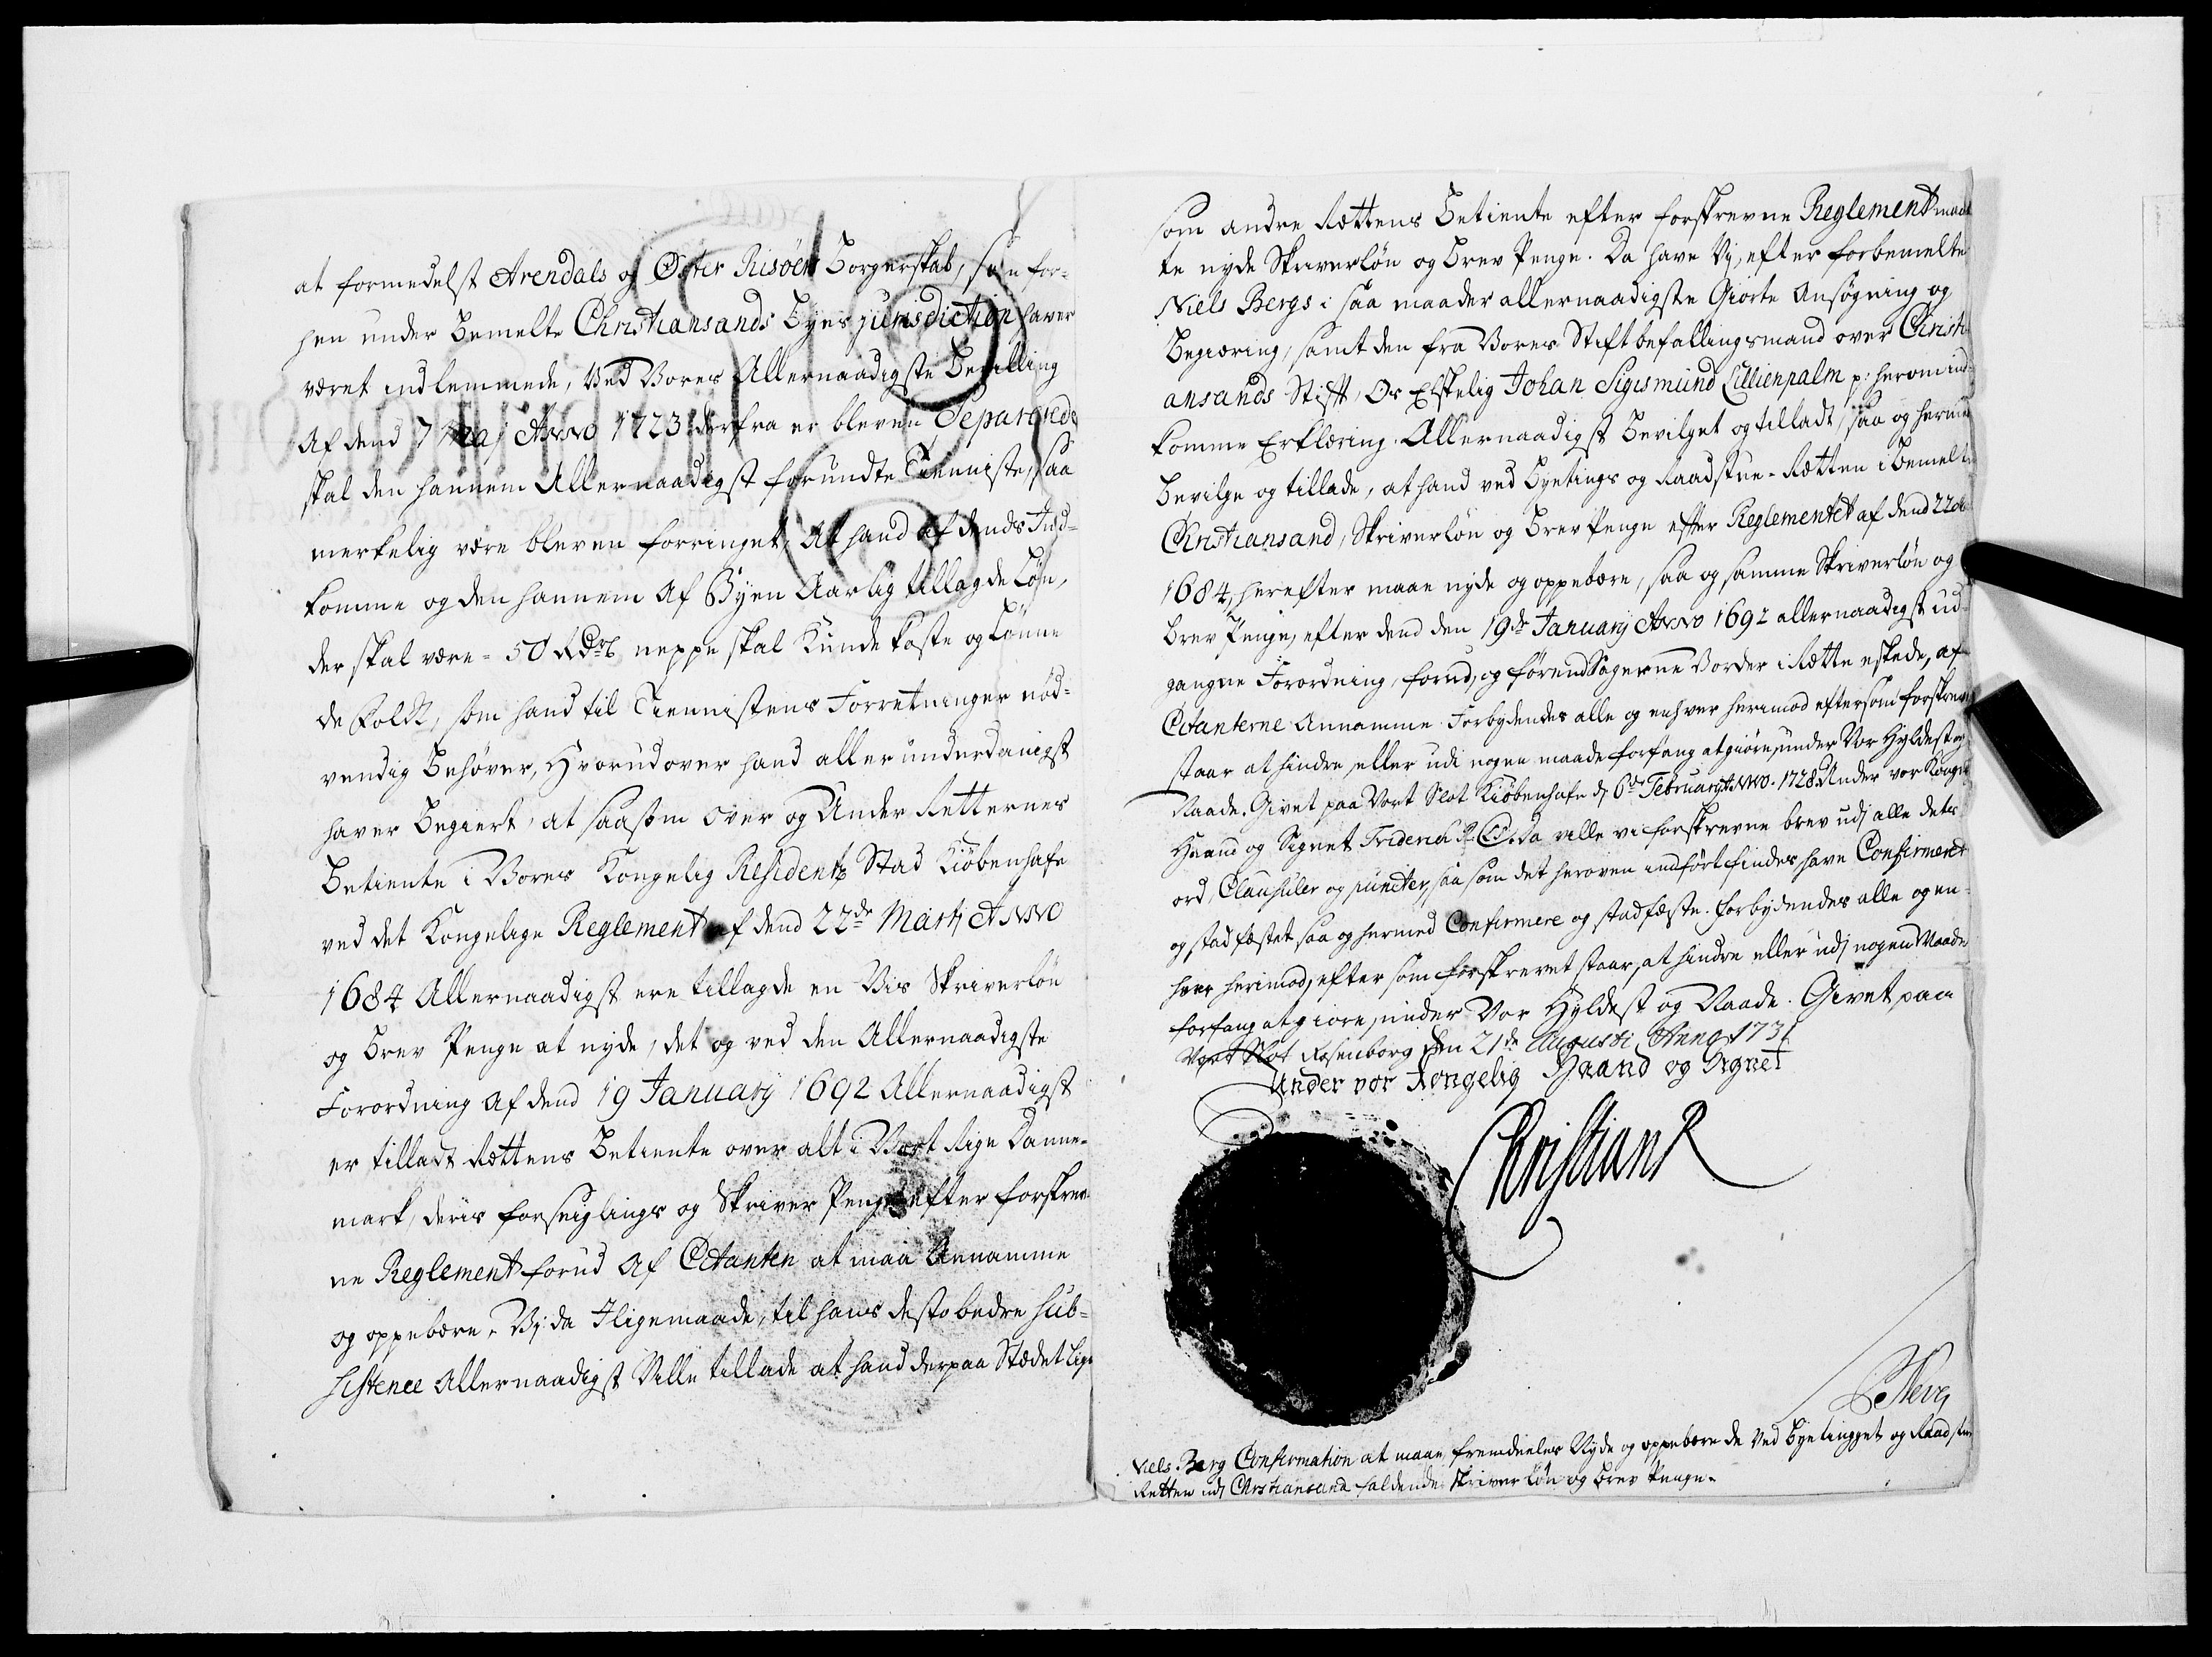 at formedelst Arendals og Øster Risöers Borgerskab, som for-
hen under Bemelte Christiansands Byes jurisdiction haver
været indlemmede, ved Vores Allernaadigste Bevilling
Af dend 7 Maj Anno 1723 derfra er bleven Separerede
skal den hannem Allernaadigst forundte Tienniste, saa
merkelig være bleven forringet, At hand af dends Ind-
komme og den hannem Af Byen Aarlig tillagde Løn,
der skal være = 50 Rdr neppe skal Kunde koste og Lønne
de Folck, som hand til Tiennistens Forretninger nød-
vendig Behøver, Hvorudover hand allerunderdanigst
haver Begiert, at saasom Over og Under Retternes
Betiente i Vores Kongelig Residentz Stad Kiöbenhafn
ved det Kongelige Reglement af dend 22de Martj Anno
1684 Allernaadigst ere tillagde en Vis Skriverløn
og Brev Penge at nyde, det og ved den Allernaadigste
Forordning Af dend 19 Januarij 1692 Allernaadigst
er tilladt Rettens Betiente over alt i Vort Rige Danne-
mark, deris forseiglings og Skriver Penge efter forskrev-
ne Reglement forud Af Citanten at maa Annamme
og oppebære, Vj da Iligemaade, til hans desto bedre sub-
sistence Allernaadigst Ville tillade at hand derpaa Stædet lige
som andre Rettens Betiente efter forskrevne Reglement maat
te nyde Skriverløn og Brev Penge. Da have Vj, efter forbemelte
Niels Bergs i saa maader allernaadigste Giorte Ansøgning og
Begiæring, samt den fra Vores Stiftbefallingsmand over Christi-
ansands Stift, Os Elskelig Johan Sigismund Lillienpalm p: herom ind-
komme Erklæring Allernaadigst Bevilget og tilladt, saa og hermed
Bevilge og tillade, at hand ved Byetings og Raadstue-Retten i Bemelte
Christiansand, Skriverløn og Brev Penge efter Reglementet af dend 22de
1684, herefter maae nyde og oppebære, saa og samme Skriverløn og
Brev Penge, efter dend den 19de Januarij Anno 1692 allernaadigst ud-
gangne Forordning, forud, og førend Sagerne Vorder i Rette eskede, af
Citanterne Annamme Forbydendes alle og enhver herimod eftersom forskrevet
staar at hindre eller udi nogen maade forfang at giøre, under Vor Hyldest og
Naade. Givet paa Vort Slot Kiöbenhafn d 6de Februarij Anno. 1728. Under vor Konge
Haand og Signet Friderich R: Da ville vi forskrevne brev udj alle detz
ord, Clausuler og puncter, saa som det heroven indført findes have Confirmeret
og stadfæstet saa og hermed Confirmere og stadfæste. forbydendes alle og en-
hver herimod, efter som forskrevet staar, at hindre eller udj nogen Maade
forfang at giøre, under Vor Hyldest og Naade. Givet paa
Vort Slot Rosenborg den 21de Augusti Anno 1731
Under vor Kongelig Haand og Signet
Christian R
Niels Berg Confirmation at maae fremdeeles Nyde og oppebære de Ved Byetinget og Raadstue
Retten udj Christiansand faldende Skriver Løn og Brev Penge.